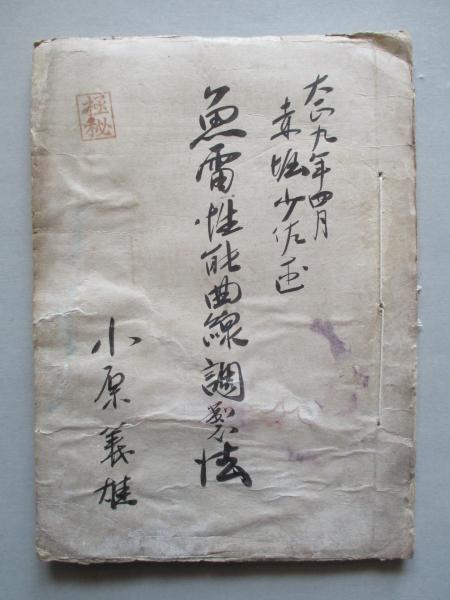 大正九年四月
赤堀少佐述
魚雷性能曲線調製法
小原義雄
極秘